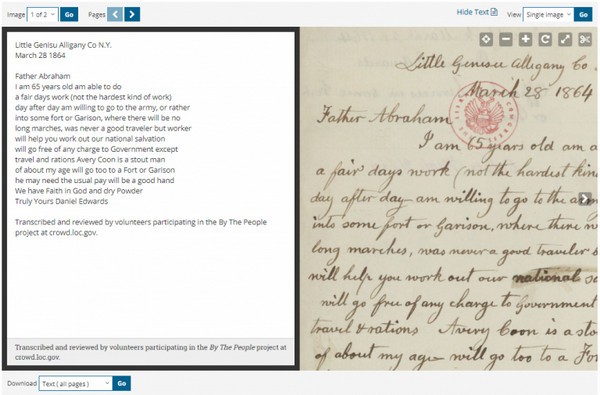 Image 1 of 2 Go Pages Hide Text View Single Image Go
Little Genisu Alligany Co N.Y.
March 28 1864
Father Abraham
I am 65 years old am able to do
a fair days work (not the hardest kind of work)
day after day am willing to go to the army, or rather
into some fort or Garison, where there will be no
long marches, was never a good traveler but worker
will help you work out our national salvation
will go free of any charge to Government except
travel and rations Avery Coon is a stout man
of about my age will go too to a Fort or Garison
he may need the usual pay will be a good hand
We have Faith in God and dry Powder
Truly Yours Daniel Edwards
Transcribed and reviewed by volunteers participating in the By The People
project at crowd.loc.gov.
Transcribed and reviewed by volunteers participating in the By The People project at
crowd.loc.gov.
Little Genesee Allegany Co.
March 28 1864
Father Abraham
I am 65 years old am a
a fair days work (not the hardest kin
day after day am willing to go to the arm
into some fort or Garison, where there w
long marches, was never a good traveler
will help you work out our national sa
will go free of any charge to Government
travel & rations Avery Coon is a sto
of about my age will go too to a For
Download Text ( all pages ) Go